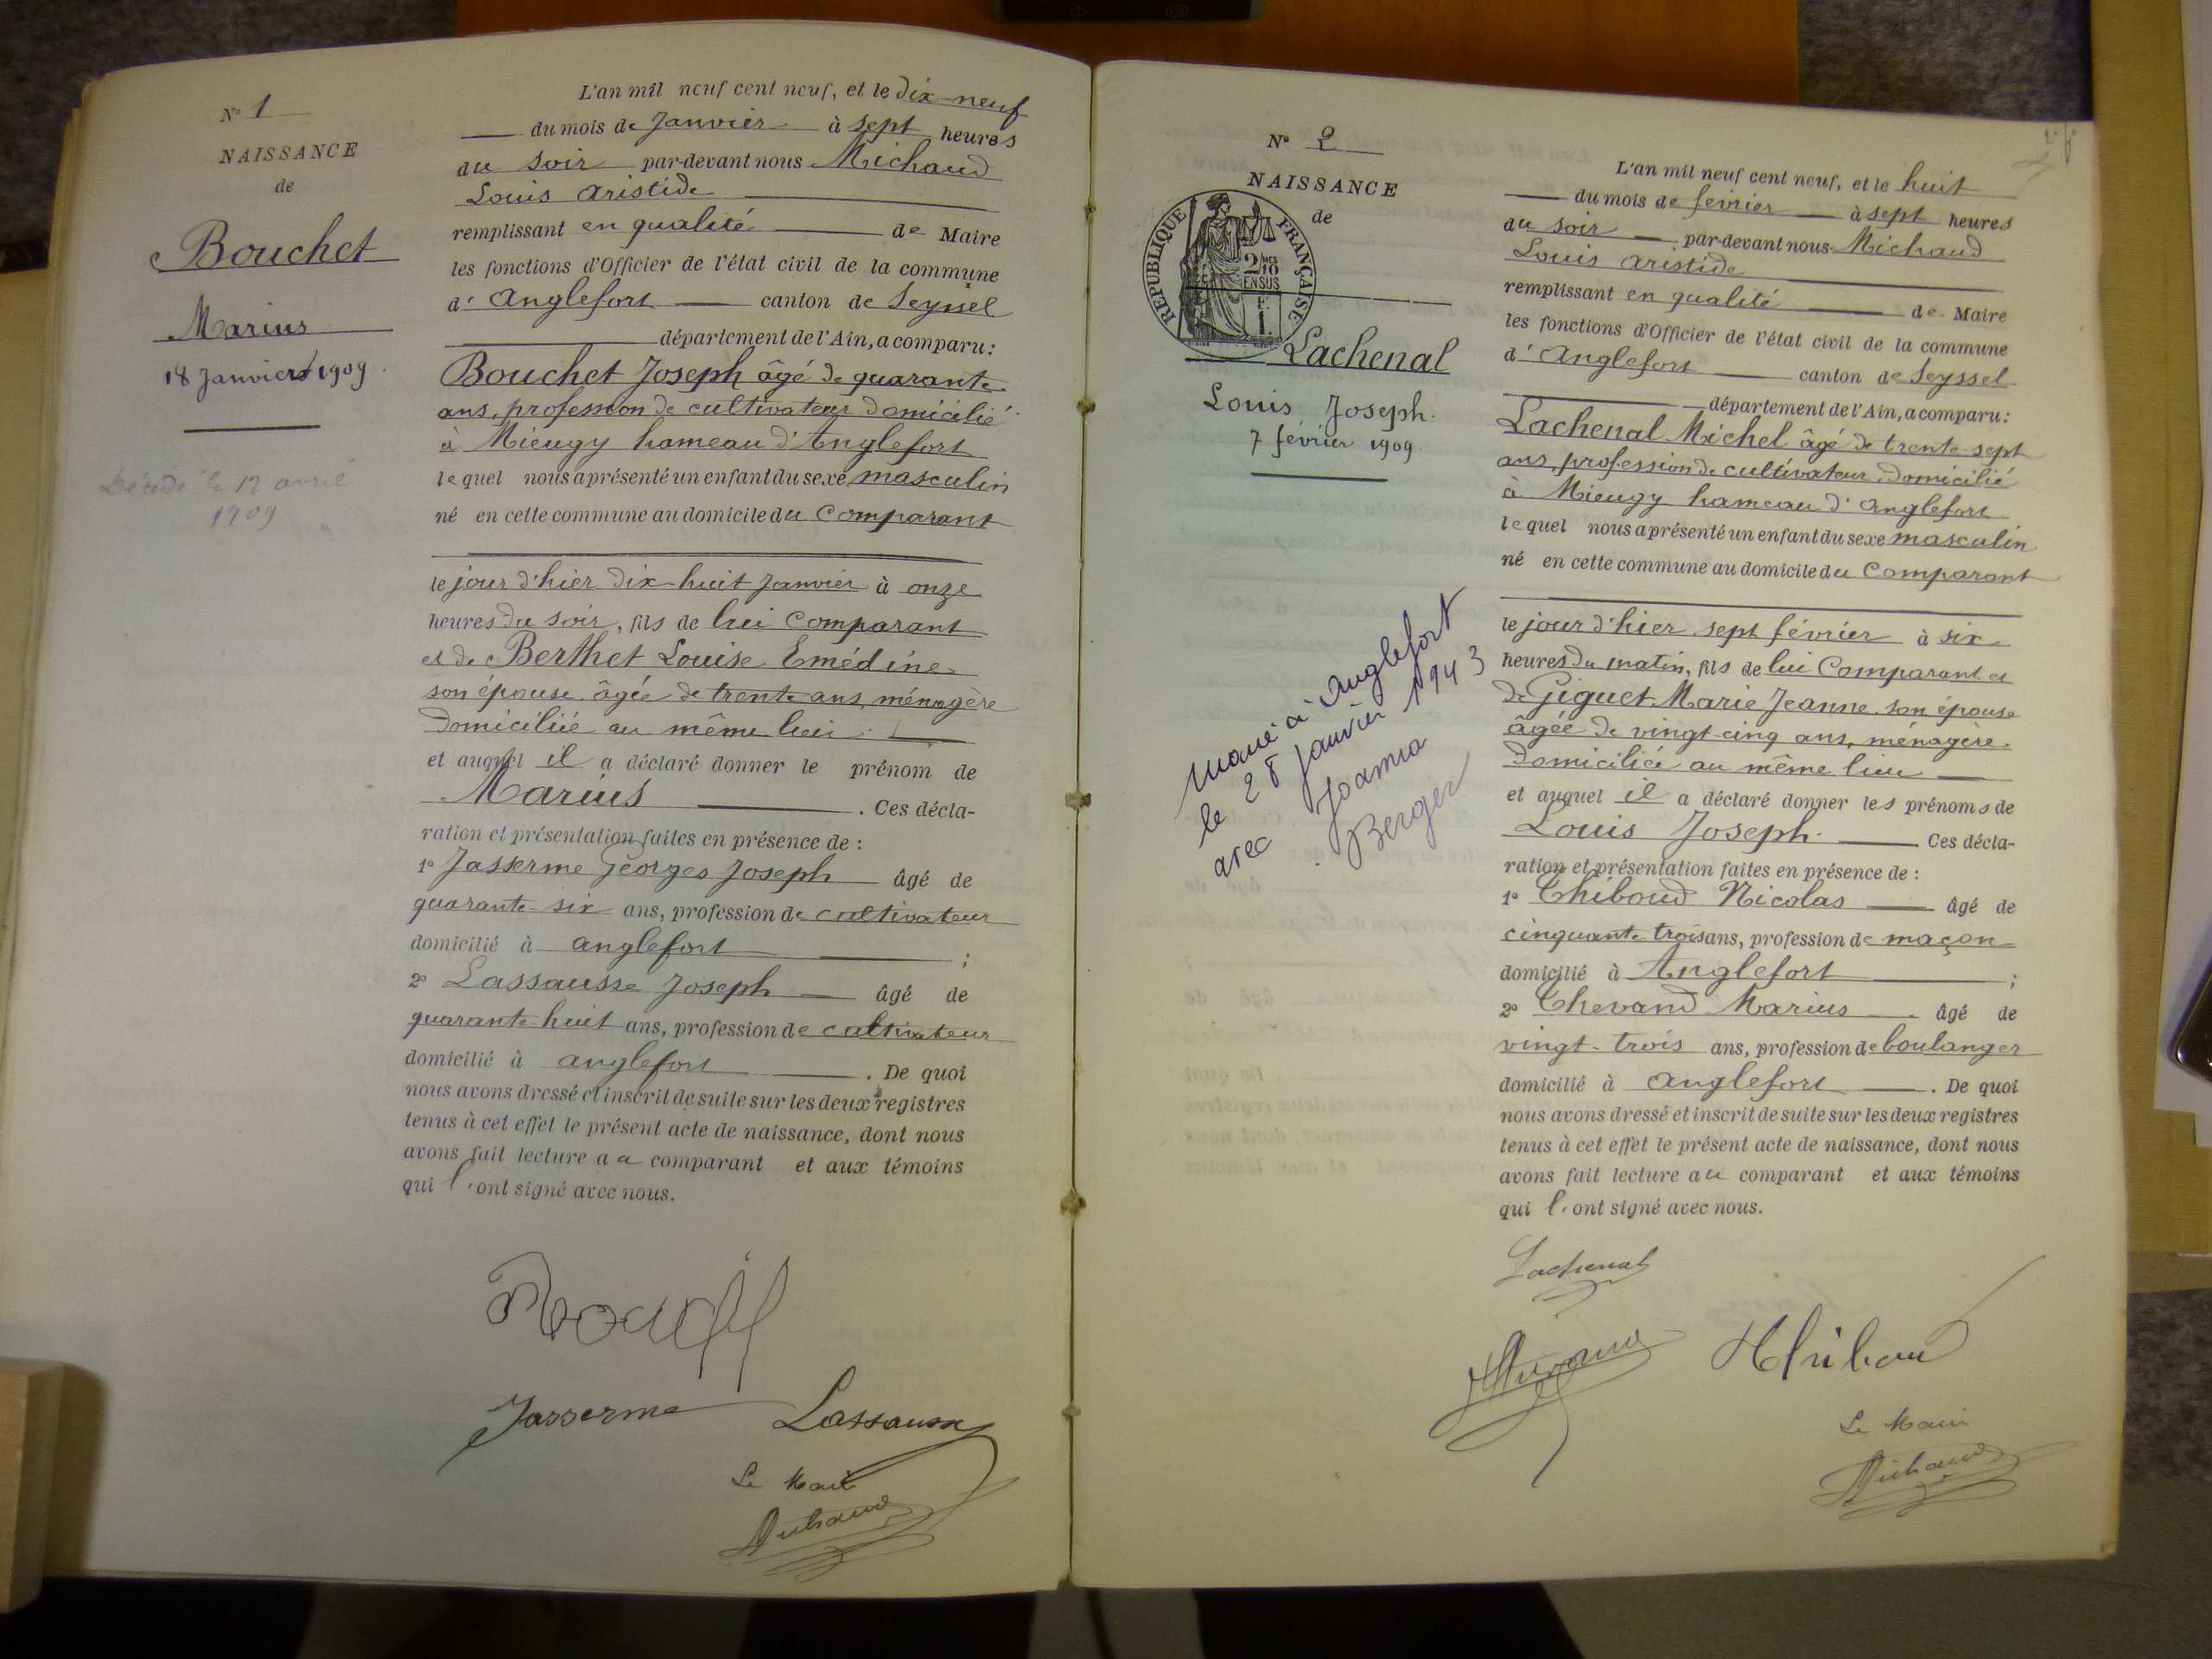 N° 1
NAISSANCE
de
Bouchet
Marius
18 Janvier 1909.
Décédé le 12 avril
1909
L'an mil neuf cent neuf, et le dix-neuf
du mois de Janvier à sept heures
du soir par-devant nous Michaud
Louis Aristide
remplissant en qualité de Maire
les fonctions d'Officier de l'état civil de la commune
d'Anglefort canton de Seyssel
département de l'Ain, a comparu :
Bouchet Joseph âgé de quarante
ans, profession de cultivateur domicilié
à Mieugy hameau d'Anglefort
lequel nous a présenté un enfant du sexe masculin
né en cette commune au domicile du Comparant
le jour d'hier dix-huit Janvier à onze
heures du soir, fils de lui Comparant
et de Berthet Louise Emédine
son épouse âgée de trente ans, ménagère
domiciliée au même lieu.
et auquel il a déclaré donner le prénom de
Marius . Ces décla-
ration et présentation faites en présence de :
1° Jasserme Georges Joseph âgé de
quarante-six ans, profession de cultivateur
domicilié à anglefort ;
2° Lassausse Joseph âgé de
quarante-huit ans, profession de cultivateur
domicilié à anglefort . De quoi
nous avons dressé et inscrit de suite sur les deux registres
tenus à cet effet le présent acte de naissance, dont nous
avons fait lecture au comparant et aux témoins
qui l'ont signé avec nous.
Jasserme Lassausse
Le Maire
Michaud
N° 2
NAISSANCE
de
REPUBLIQUE FRANÇAISE
2/10 MES
EN SUS
Lachenal
Louis Joseph.
7 février 1909.
Marié à Anglefort
le 28 janvier 1943
avec Joanna
Berger
L'an mil neuf cent neuf, et le huit
du mois de février à sept heures
du soir par-devant nous Michaud
Louis Aristide
remplissant en qualité de Maire
les fonctions d'Officier de l'état civil de la commune
d'Anglefort canton de Seyssel
département de l'Ain, a comparu :
Lachenal Michel âgé de trente-sept
ans, profession de cultivateur, domicilié
à Mieugy hameau d'Anglefort
lequel nous a présenté un enfant du sexe masculin
né en cette commune au domicile du Comparant
le jour d'hier sept février à six
heures du matin, fils de lui Comparant et
de Giguet Marie Jeanne son épouse
âgée de vingt-cinq ans, ménagère
domiciliée au même lieu
et auquel il a déclaré donner les prénoms de
Louis Joseph. Ces décla-
ration et présentation faites en présence de :
1° Thiboud Nicolas âgé de
cinquante-trois ans, profession de maçon
domicilié à Anglefort ;
2° Chevand Marius âgé de
vingt-trois ans, profession de boulanger
domicilié à anglefort . De quoi
nous avons dressé et inscrit de suite sur les deux registres
tenus à cet effet le présent acte de naissance, dont nous
avons fait lecture au comparant et aux témoins
qui l'ont signé avec nous.
Lachenal
Le Maire
Michaud